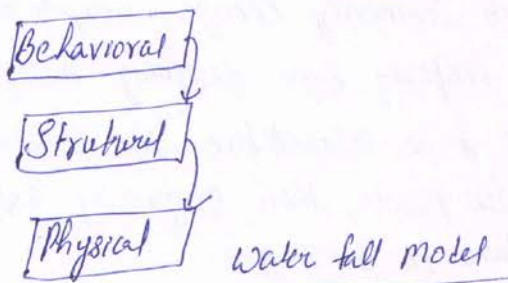 Behavioral
Strutural
Physical
Water fall Model